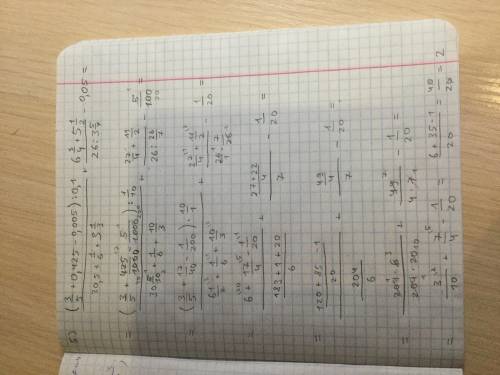 5) ((3/5 + 0,425 - 0,005) : 0,1)/(30,5 + 1/6 + 3 1/3) + (6 3/4 + 5 1/2)/(26 : 3 5/7) - 0,05 =
= ((3/5 + 425/1000 - 5/1000) : 1/10)/(30 5/10 + 1/6 + 10/3) + (27/4 + 11/2)/(26 : 26/7) - 5/100 =
= ((3/5 + 17/40 - 1/200) · 10/1)/(61/2 + 1/6 + 10/3) + (27/4 + 11/2)/(26/1 · 7/26) - 1/20 =
= (6 + 17/4 - 1/20)/((183 + 1 + 20)/6) + ((27 + 22)/4)/7 - 1/20 =
= ((120 + 85 - 1)/20)/(204/6) + (49/4)/7 - 1/20 =
= (204 · 6)/(204 · 20) + 49/(4 · 7) - 1/20 =
= 3/10 + 7/4 - 1/20 = (6 + 35 - 1)/20 = 40/20 = 2